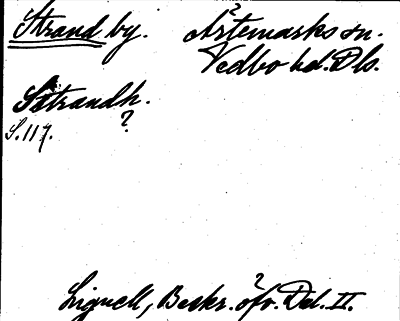 Strand by. Ärtemarks sn.
Vedbo hd. Dls.
Strandh.
?
S. 117.
Lignell, Beskr. öfv. Dal. II.